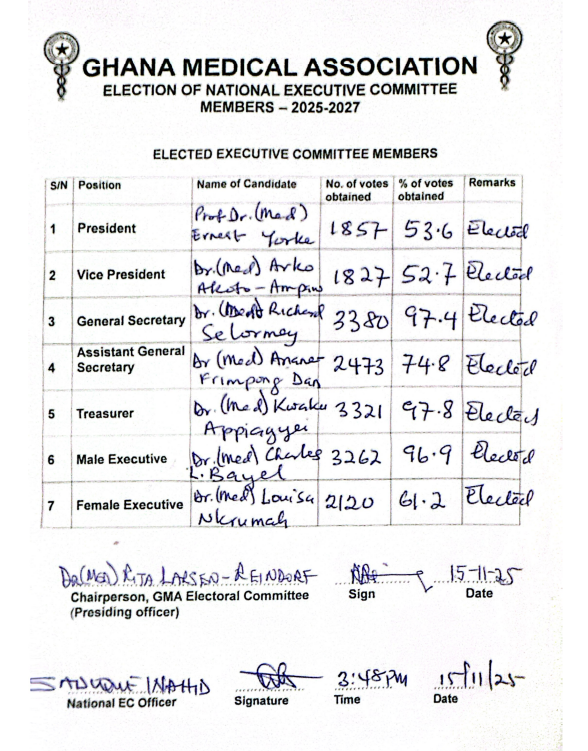 GHANA MEDICAL ASSOCIATION
ELECTION OF NATIONAL EXECUTIVE COMMITTEE
MEMBERS – 2025-2027
ELECTED EXECUTIVE COMMITTEE MEMBERS
S/N Position Name of Candidate No. of votes obtained % of votes obtained Remarks
1 President Prof Dr. (Med) Ernest Yorke 1857 53.6 Elected
2 Vice President Dr. (Med) Arko Akoto-Ampaw 1827 52.7 Elected
3 General Secretary Dr. (Med) Richard Selormey 3380 97.4 Elected
4 Assistant General Secretary Dr (Med) Frimpong Dan 2473 74.8 Elected
5 Treasurer Dr. (Med) Kwaku Appiagyei 3321 97.8 Elected
6 Male Executive Dr. (Med) Charles L. Bayel 3262 96.9 Elected
7 Female Executive Dr. (Med) Louisa Nkrumah 2120 61.2 Elected
DR (MED) RITA LARSEN-REINDORF 15-11-25
Chairperson, GMA Electoral Committee Sign Date
(Presiding officer)
3:48PM 15/11/25
National EC Officer Signature Time Date